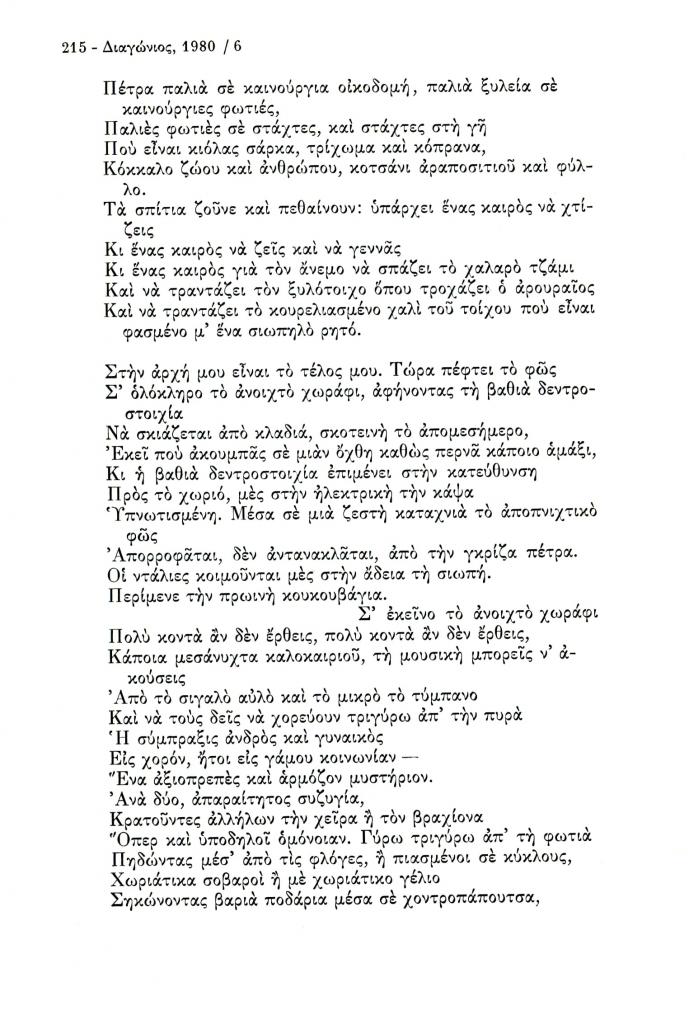 215 - Διαγώνιος, 1980 / 6
Πέτρα παλιὰ σὲ καινούργια οἰκοδομή, παλιὰ ξυλεία σὲ
καινούργιες φωτιές,
Παλιὲς φωτιὲς σὲ στάχτες, καὶ στάχτες στὴ γῆ
Ποὺ εἶναι κιόλας σάρκα, τρίχωμα καὶ κόπρανα,
Κόκκαλο ζώου καὶ ἀνθρώπου, κοτσάνι ἀραποσιτιοῦ καὶ φύλ-
λο.
Τὰ σπίτια ζοῦνε καὶ πεθαίνουν: ὑπάρχει ἕνας καιρὸς νὰ χτί-
ζεις
Κι ἕνας καιρὸς νὰ ζεῖς καὶ νὰ γεννᾶς
Κι ἕνας καιρὸς γιὰ τὸν ἄνεμο νὰ σπάζει τὸ χαλαρὸ τζάμι
Καὶ νὰ τραντάζει τὸν ξυλότοιχο ὅπου τροχάζει ὁ ἀρουραῖος
Καὶ νὰ τραντάζει τὸ κουρελιασμένο χαλὶ τοῦ τοίχου ποὺ εἶναι
φασμένο μ' ἕνα σιωπηλὸ ρητό.
Στὴν ἀρχή μου εἶναι τὸ τέλος μου. Τώρα πέφτει τὸ φῶς
Σ' ὁλόκληρο τὸ ἀνοιχτὸ χωράφι, ἀφήνοντας τὴ βαθιὰ δεντρο-
στοιχία
Νὰ σκιάζεται ἀπὸ κλαδιά, σκοτεινὴ τὸ ἀπομεσήμερο,
Ἐκεῖ ποὺ ἀκουμπᾶς σὲ μιὰν ὄχθη καθὼς περνᾶ κάποιο ἁμάξι,
Κι ἡ βαθιὰ δεντροστοιχία ἐπιμένει στὴν κατεύθυνση
Πρὸς τὸ χωριό, μὲς στὴν ἠλεκτρικὴ τὴν κάψα
Ὑπνωτισμένη. Μέσα σὲ μιὰ ζεστὴ καταχνιὰ τὸ ἀποπνιχτικὸ
φῶς
Ἀπορροφᾶται, δὲν ἀντανακλᾶται, ἀπὸ τὴν γκρίζα πέτρα.
Οἱ ντάλιες κοιμοῦνται μὲς στὴν ἄδεια τὴ σιωπή.
Περίμενε τὴν πρωινὴ κουκουβάγια.
Σ' ἐκεῖνο τὸ ἀνοιχτὸ χωράφι
Πολὺ κοντὰ ἂν δὲν ἔρθεις, πολὺ κοντὰ ἂν δὲν ἔρθεις,
Κάποια μεσάνυχτα καλοκαιριοῦ, τὴ μουσικὴ μπορεῖς ν' ἀ-
κούσεις
Ἀπὸ τὸ σιγαλὸ αὐλὸ καὶ τὸ μικρὸ τὸ τύμπανο
Καὶ νὰ τοὺς δεῖς νὰ χορεύουν τριγύρω ἀπ' τὴν πυρὰ
Ἡ σύμπραξις ἀνδρὸς καὶ γυναικὸς
Εἰς χορόν, ἤτοι εἰς γάμου κοινωνίαν —
Ἕνα ἀξιοπρεπὲς καὶ ἁρμόζον μυστήριον.
Ἀνὰ δύο, ἀπαραίτητος συζυγία,
Κρατοῦντες ἀλλήλων τὴν χεῖρα ἢ τὸν βραχίονα
Ὅπερ καὶ ὑποδηλοῖ ὁμόνοιαν. Γύρω τριγύρω ἀπ' τὴ φωτιὰ
Πηδώντας μέσ' ἀπὸ τὶς φλόγες, ἢ πιασμένοι σὲ κύκλους,
Χωριάτικα σοβαροὶ ἢ μὲ χωριάτικο γέλιο
Σηκώνοντας βαριὰ ποδάρια μέσα σὲ χοντροπάπουτσα,